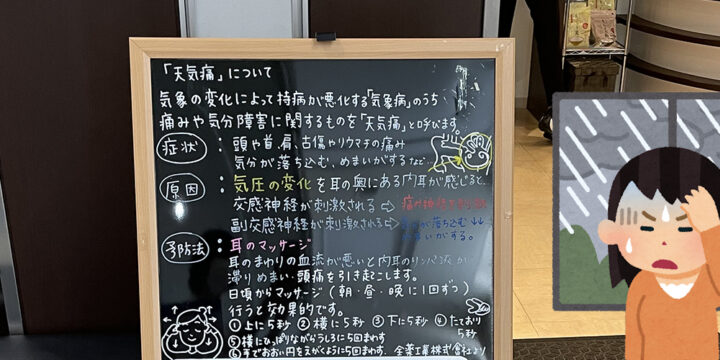 「天気痛」について
気象の変化によって持病が悪化する「気象病」のうち
痛みや気分障害に関するものを「天気痛」と呼びます。
症状：頭や首、肩、古傷やリウマチの痛み
気分が落ち込む、めまいがするなど…
原因：気圧の変化を耳の奥にある内耳が感じると、
交感神経が刺激される⇨
副交感神経が刺激される⇨ が落ち込む↓↓
めまいがする。
予防法：耳のマッサージ
耳のまわりの血流が悪いと内耳のリンパ液が
滞りめまい・頭痛を引き起こします。
日頃からマッサージ(朝・昼・晩に1回ずつ)
行うと効果的です。
①上に5秒 ②横に5秒 ③下に5秒 ④たており5秒
⑤横にひっぱりながらうしろに5回まわす
⑥手でおおい円をえがくように5回まわす 全薬工業株式会社より